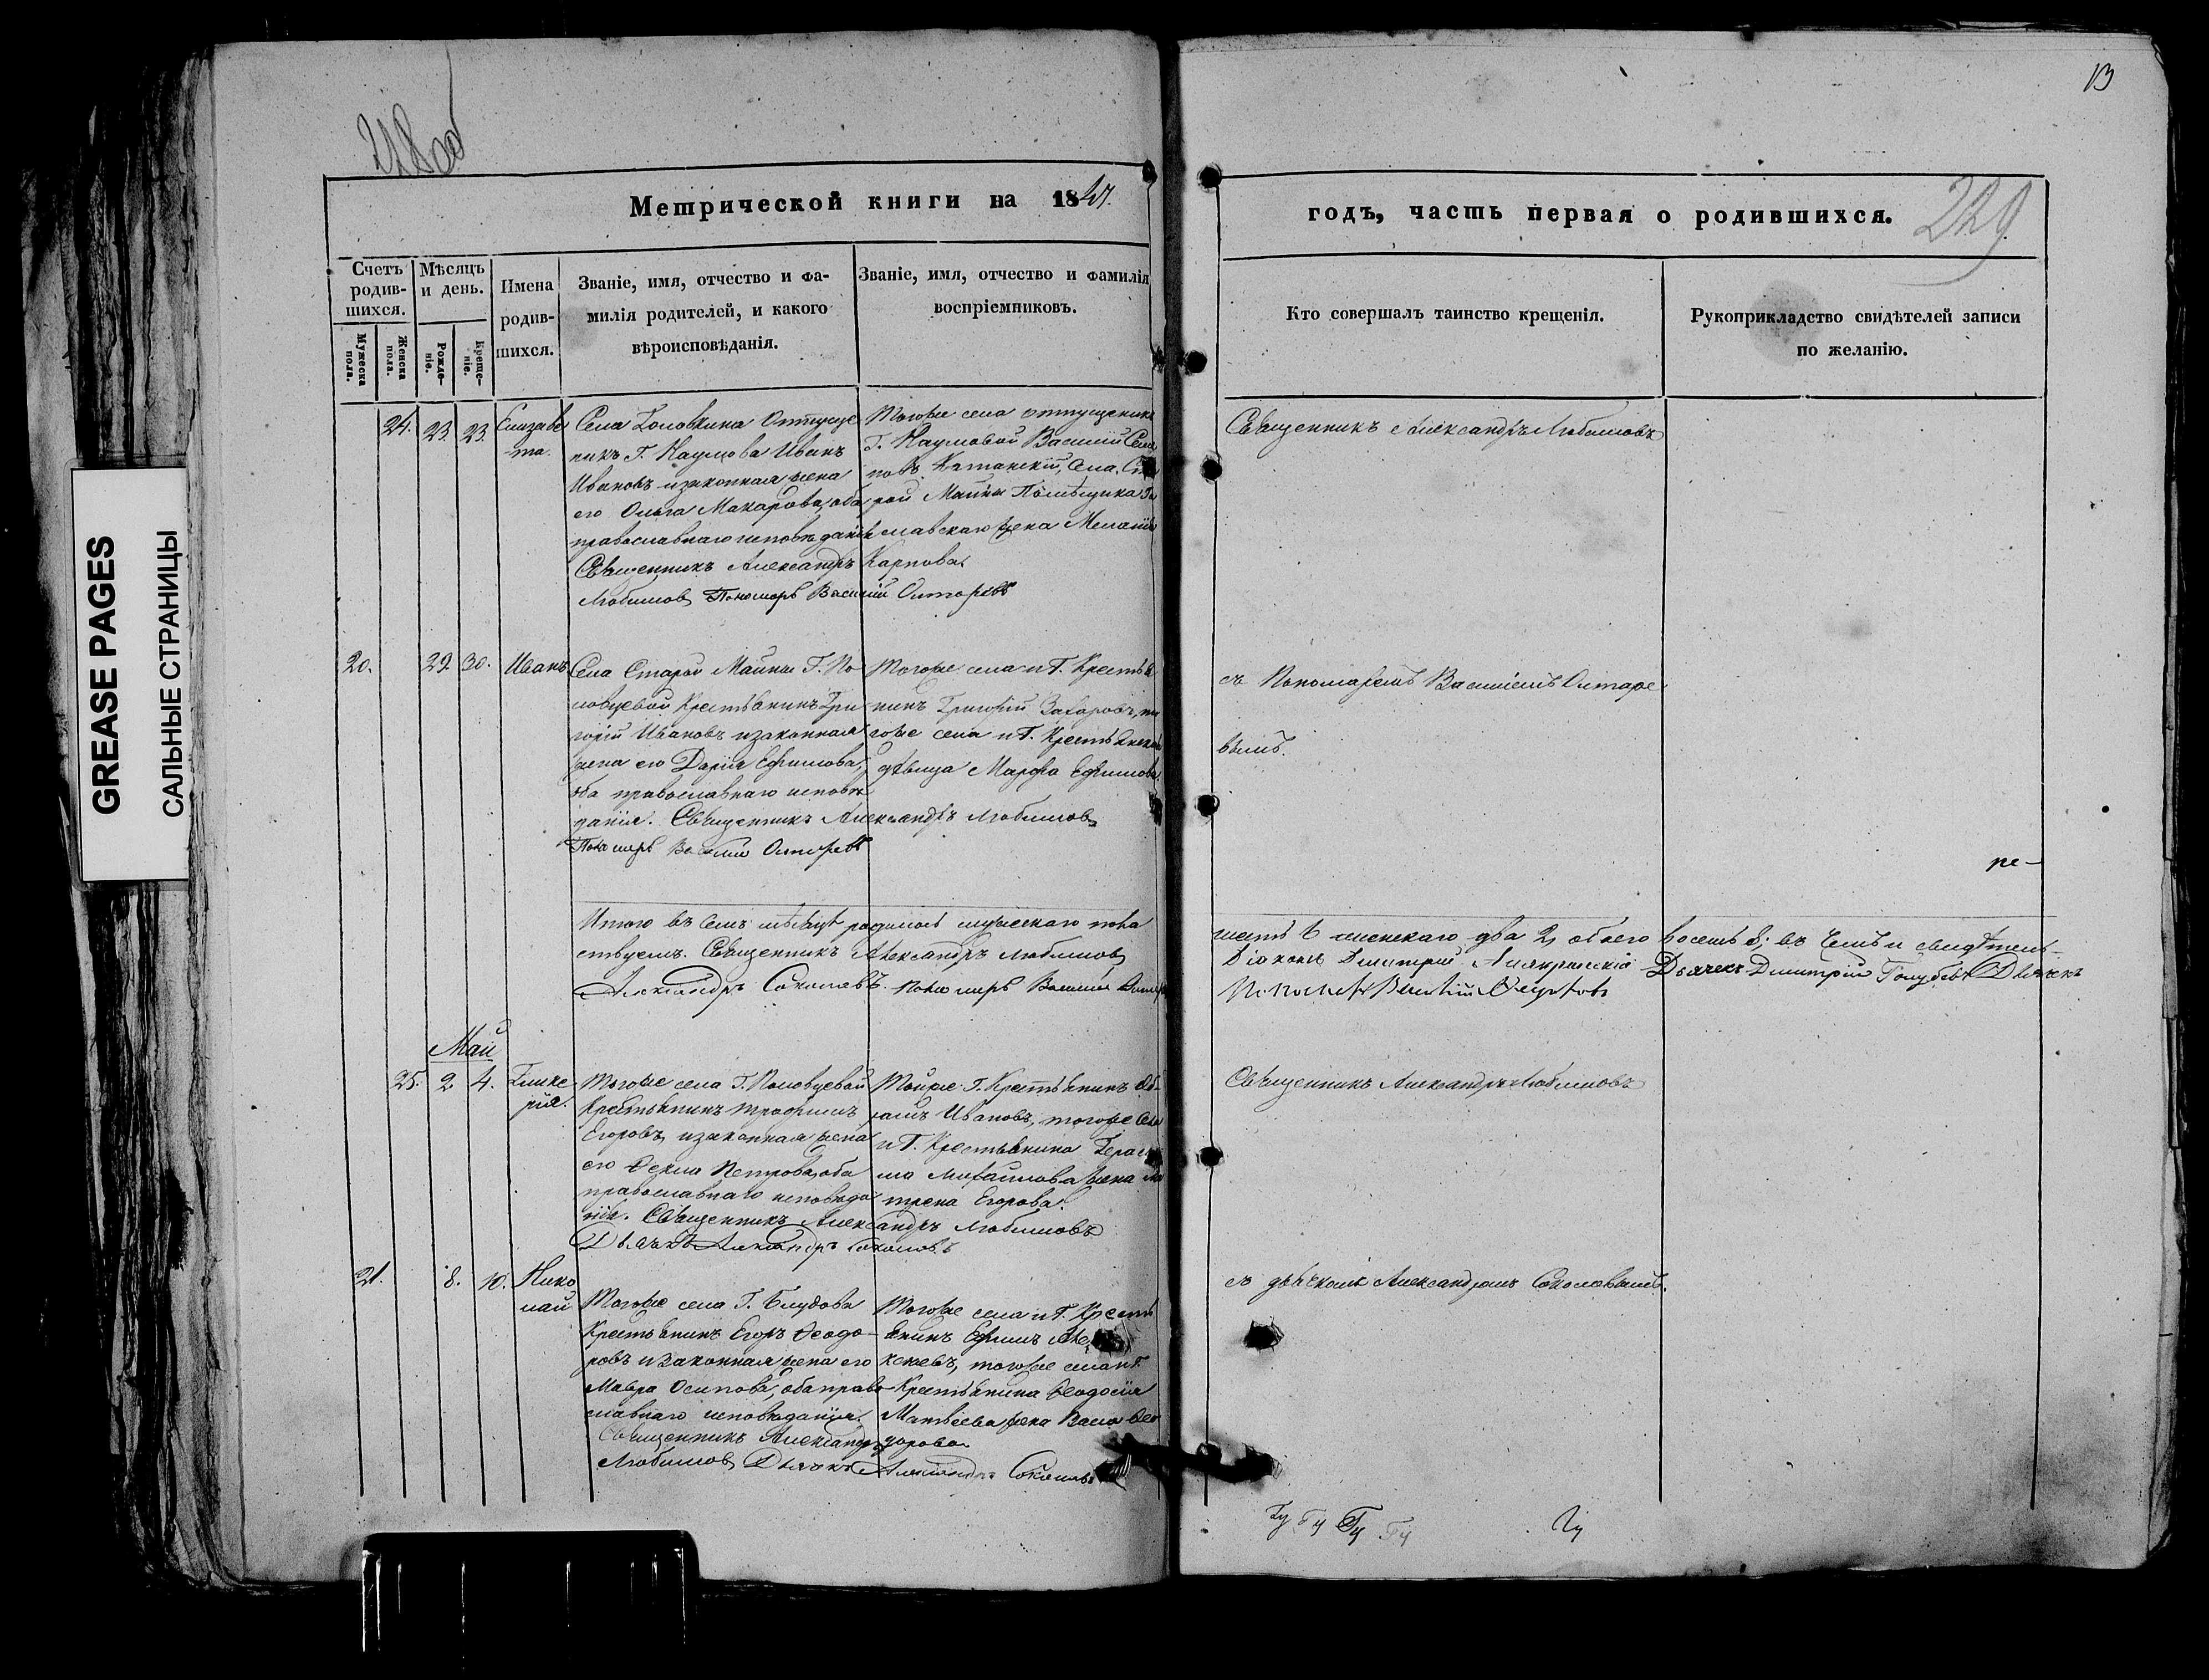 13
228об
229
GREASE PAGES
САЛЬНЫЕ СТРАНИЦЫ
Метрической книги на 1847.
годъ, часть первая о родившихся.
Счетъ родив-шихся.
Мѣсяцъ и день.
Мужеска пола.
Женска пола.
Рожде-ніе.
Креще-ніе.
Имена родив-шихся.
Званіе, имя, отчество и фа-
милія родителей, и какого
вѣроисповѣданія.
Званіе, имя, отчество и фамилія
воспріемниковъ.
Кто совершалъ таинство крещенія.
Рукоприкладство свидѣтелей записи
по желанію.
24. 23. 23. Елизаве
та.
Села Головкина Отпуще
никъ Г. Наумова Иванъ
Ивановъ изаконная жена
его Ольга Макарова, оба
православнаго исповѣданія
Священникъ Александръ
Любимов Пономарь Василий
Тогоже села отпущеникъ
Г. Наумовой Василий
новъ села
рой Майны Помѣщика
славскаго жена Меланія
Карпова.
Священникъ Александръ Любимовъ
20. 29. 30. Иванъ
Села Старой Майны Г. По
ловцевой Крестьянинъ Гри
горій Ивановъ изаконная
жена его Дарія Ефимова,
оба православнаго исповѣ
данія. Священникъ Александръ Любимов
Пономарь Василий
Тогоже села иГ. Крестья
нинъ Григорій Захаровъ, то
гоже села иГ. Крестьянская
дѣвица Марфа Ефимова.
съ Пономаремъ Василіемъ Олтаре
вымъ.
ро-
Итого въ семъ мѣсяцѣ родилось мужескаго пола
шесть 6 женскаго два 2, обоего восемь 8; въ чемъ и свидѣтель-
ствуемъ. Священникъ Александръ Любимов
Діаконъ Димитрий Дьячекъ Димитрій Голубевъ Дьячекъ
Александръ Соколовъ. Пономарь Василий
Май
25. 2. 4. Глике
рія.
Тогоже села Г. Половцевой
Крестьянинъ Трофимъ
Егоровъ, изаконная жена
его Ѳекла Петрова, оба
православнаго исповѣда
нія. Священникъ Александръ Любимовъ
Дьячекъ Александръ Соколовъ
Тойже Г. Крестьянинъ
Ивановъ, тогоже села
иГ. Крестьянина Гераси
ма Михайлова жена Ма
трена Егорова.
Священникъ Александръ Любимовъ
21. 8. 10. Нико
лай
Тогоже села Г. Блудова
Крестьянинъ Егоръ Ѳеодо
ровъ изаконная жена его
Мавра Осипова, оба право
славнаго исповѣданія.
Священникъ Александръ
Любимов Дьячекъ Александръ Соколовъ
Тогоже села иГ. Кресть
янинъ Ефимъ Але
ксѣевъ, тогоже села иГ.
Крестьянина Ѳеодосія
Матвѣева жена Васса Ѳео
дорова
съ дьячкомъ Александромъ Соколовымъ.